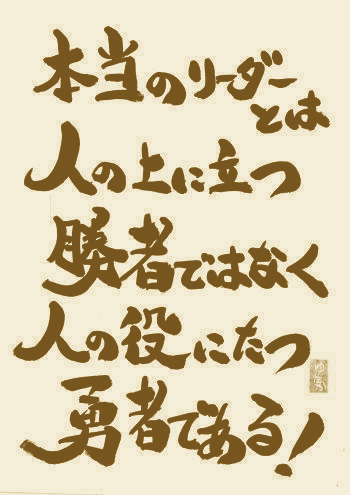 本当のリーダー
とは
人の上に立つ
勝者ではなく
人の役にたつ
勇者である!